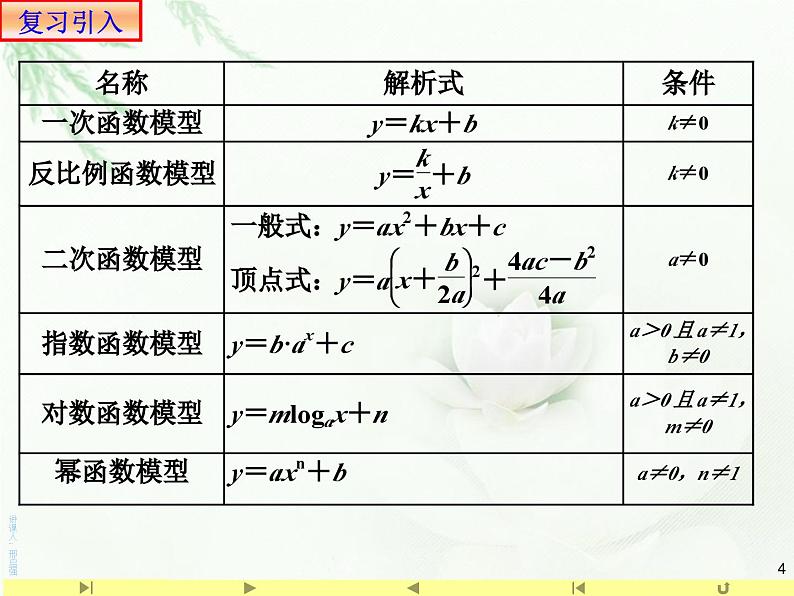 复习引入
名称 解析式 条件
一次函数模型 y＝kx＋b k≠0
反比例函数模型 y＝k/x＋b k≠0
二次函数模型 一般式：y＝ax²＋bx＋c a≠0
顶点式：y＝a(x＋b/2a)²＋(4ac－b²)/4a
指数函数模型 y＝b·aˣ＋c a＞0且a≠1，b≠0
对数函数模型 y＝mlogₐx＋n a＞0且a≠1，m≠0
幂函数模型 y＝axⁿ＋b a≠0，n≠1
讲课人：邢启强
4